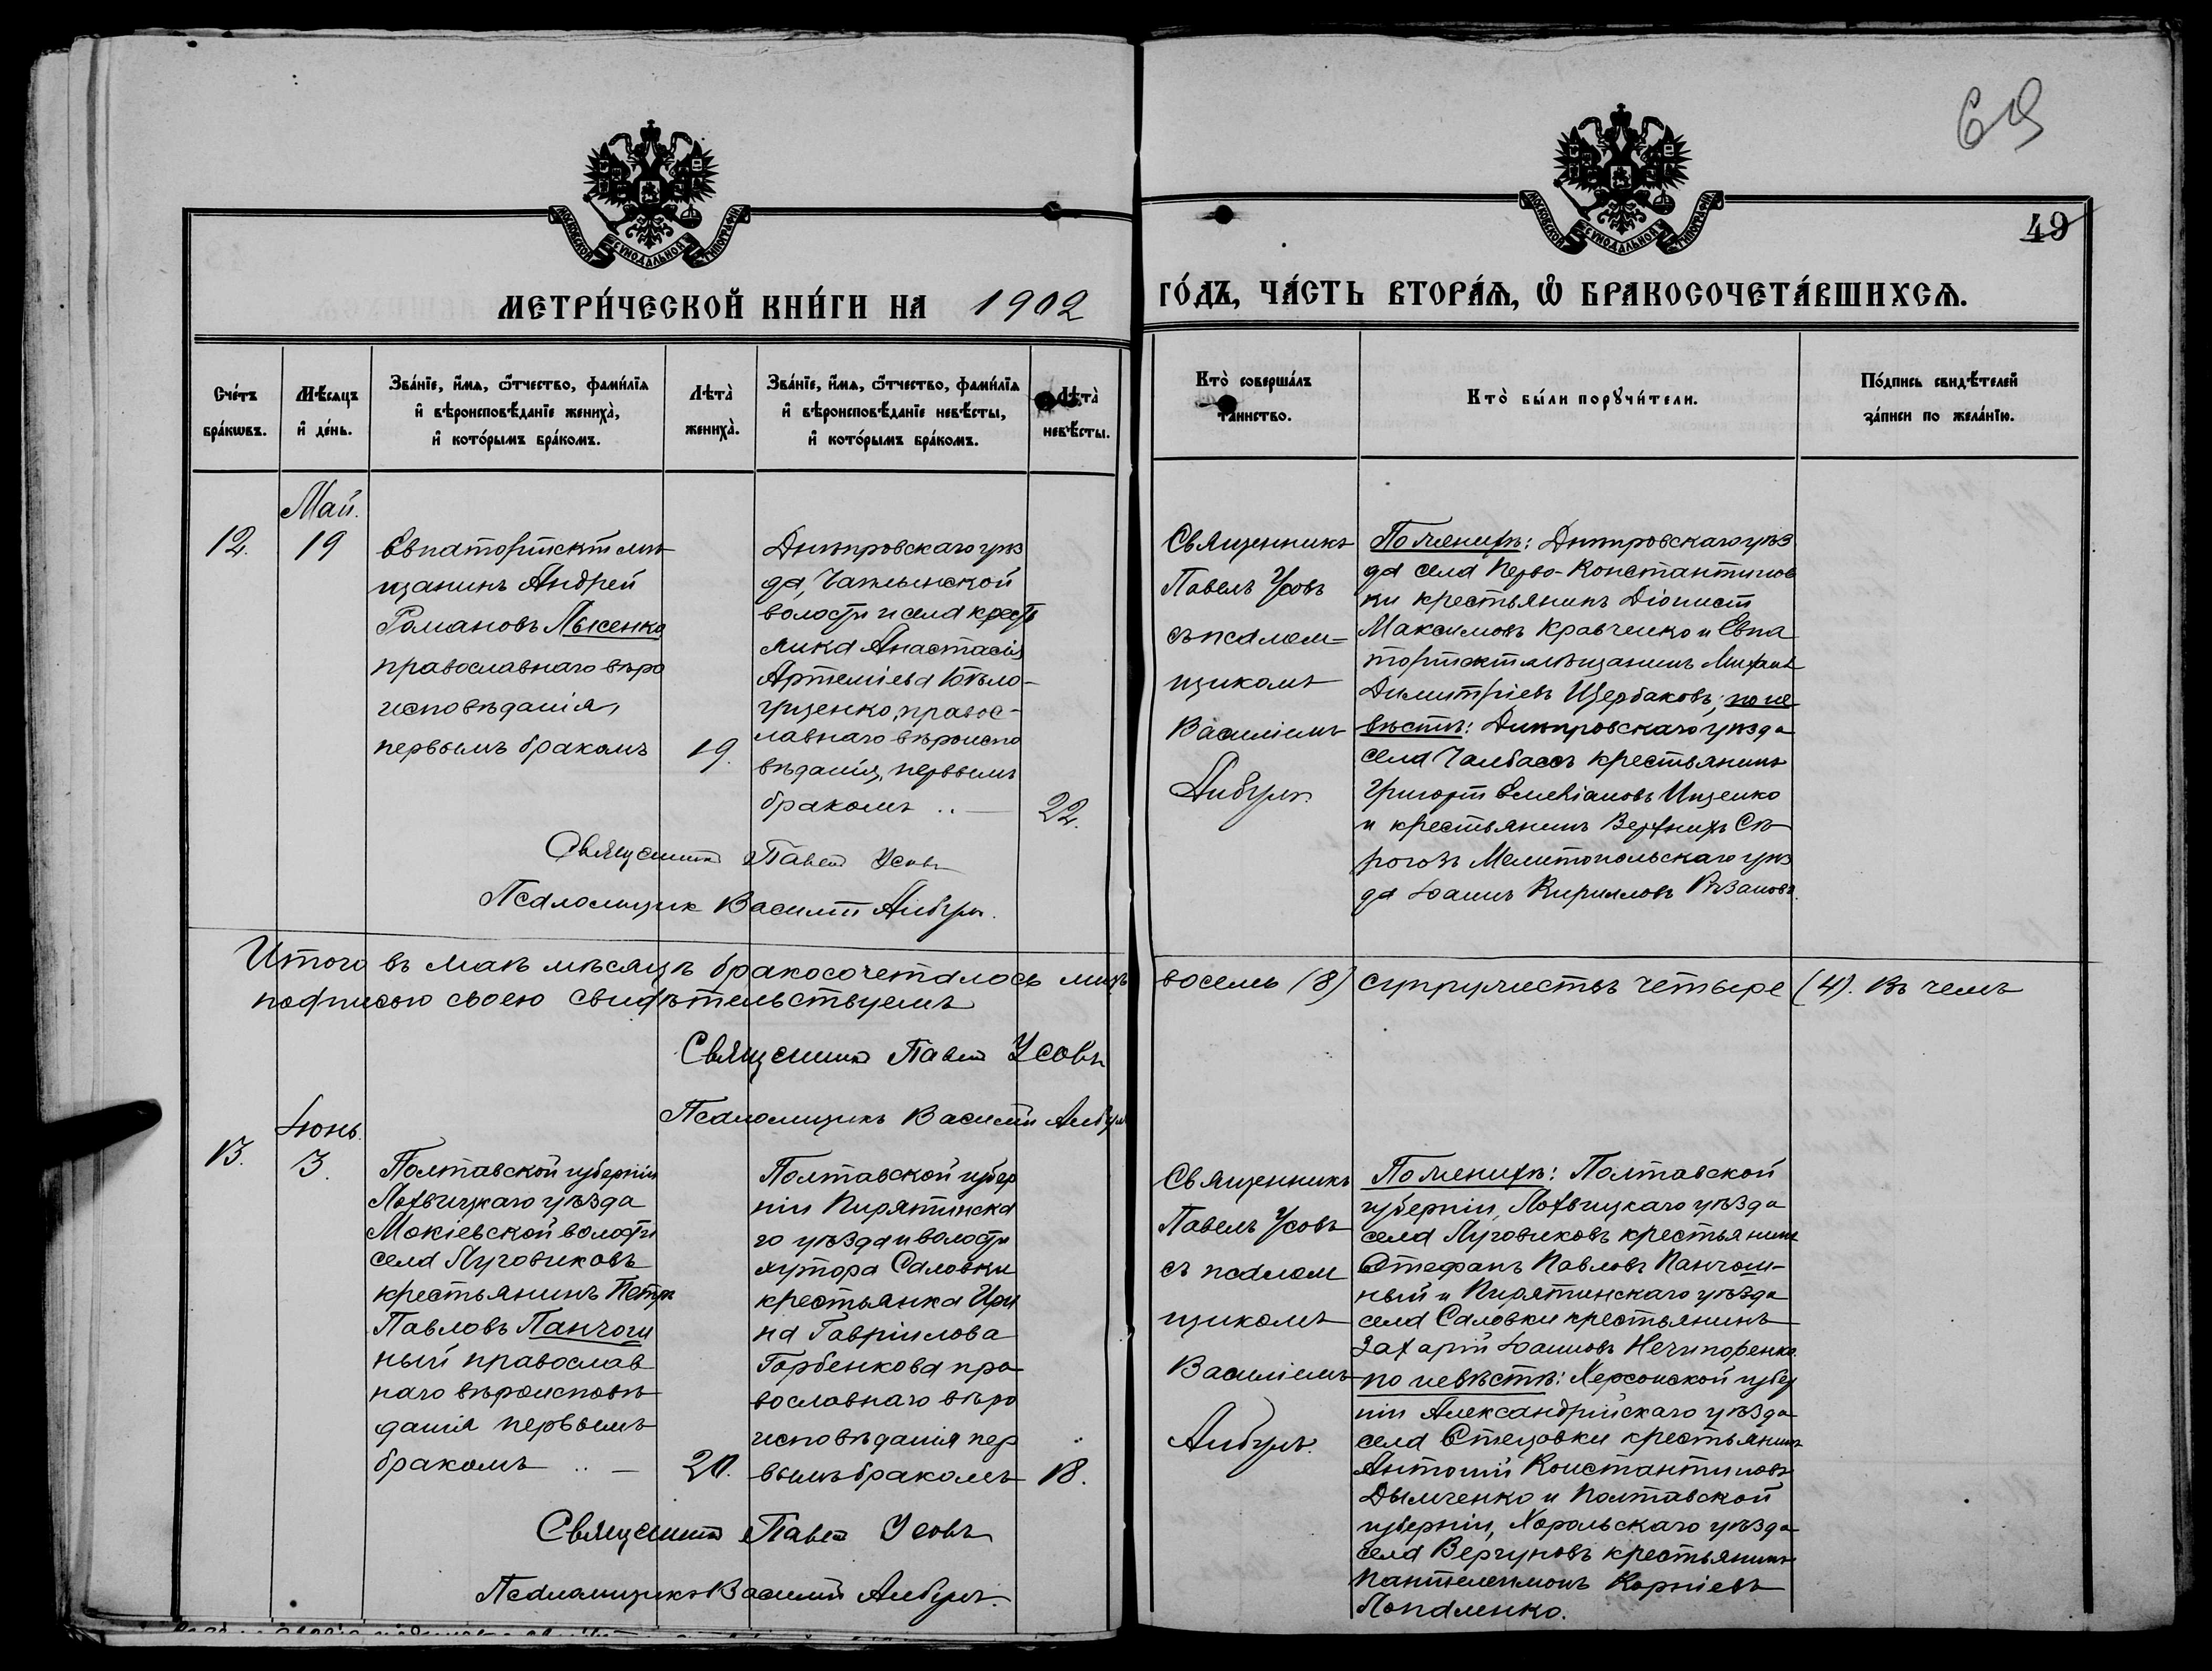 69
49
МОСКОВСКОЙ СѴНОДАЛЬНОЙ ТИПОГРАФІИ
МОСКОВСКОЙ СѴНОДАЛЬНОЙ ТИПОГРАФІИ
МЕТРИ́ЧЕСКОЙ КНИ́ГИ НА 1902
ГО́ДЪ, ЧА́СТЬ ВТОРА́Я, Ѡ БРАКОСОЧЕТА́ВШИХСЯ.
Сче́тъ бра́кѡвъ.
Мѣ́сяцъ и҆ де́нь.
Зва́нїе, и҆́мѧ, ѻ҆́тчество, фами́лїѧ
и҆ вѣроисповѣ́данїе жениха̀,
и҆ кото́рымъ бра́комъ.
Лѣта̀ жениха̀.
Зва́нїе, и҆́мѧ, ѻ҆́тчество, фами́лїѧ
и҆ вѣроисповѣ́данїе невѣ́сты,
и҆ кото́рымъ бра́комъ.
Лѣта̀ невѣ́сты.
Кто̀ соверша́лъ таинство.
Кто̀ бы́ли порꙋчи́тели.
По́дпись свидѣ́телей за́писи по жела́нїю.
Май.
12.
19
Евпаторійскій мѣ
щанинъ Андрей
Романовъ Лысенко
православнаго вѣро
исповѣданія,
первымъ бракомъ
19.
Днѣпровскаго уѣз
да,
волости и села кресть
янка Анастасія
Артеміева Бѣло-
грищенко, правос-
лавнаго вѣроиспо
вѣданія, первымъ
бракомъ .. —
22.
Священникъ
Павелъ Усовъ
съ псалом-
щикомъ
Василіемъ
Анбулъ.
По женихѣ: Днѣпровскаго уѣз
да села Перво-Константинов
ки крестьянинъ Діонисій
Максимовъ Кравченко и Евпа
торійскій мѣщанинъ Михаилъ
Димитріевъ Щербаковъ; по не
вѣстѣ: Днѣпровскаго уѣзда
села Чалбассъ крестьянинъ
Григорій Емеліановъ Ищенко
и крестьянинъ Верхнихъ Сѣ
рогозъ Мелитопольскаго уѣз
да Іоаннъ Кирилловъ Рѣзановъ.
Священникъ Павелъ Усовъ
Псаломщикъ Василій Анбулъ.
Итого въ маѣ мѣсяцѣ бракосочеталось лицъ восемь (8) супружествъ четыре (4). Въ чемъ
подписью своею свидѣтельствуемъ
Священникъ Павелъ Усовъ
Псаломщикъ Василій Анбулъ
Іюнь.
13.
3.
Полтавской губерніи
Лохвицкаго уѣзда
Мокіевской волости
села Луговиковъ
крестьянинъ Петръ
Павловъ Панчош
ный православ
наго вѣроисповѣ
данія первымъ
бракомъ .. —
20.
Полтавской губер
ніи Пирятинска
го уѣзда и волости
хутора Саловки
крестьянка Ири
на Гавріилова
Горбенкова пра
вославнаго вѣро
исповѣданія пер
вымъ бракомъ
18.
Священникъ
Павелъ Усовъ
съ псалом
щикомъ
Василіемъ
Анбулъ.
По женихѣ: Полтавской
губерніи, Лохвицкаго уѣзда
села Луговиковъ крестьянинъ
Стефанъ Павловъ Панчош-
ный и Пирятинскаго уѣзда
села Саловки крестьянинъ
Захарій Іоанновъ Нечипоренко.
по невѣстѣ: Херсонской губер
ніи Александрійскаго уѣзда
села Стецовки крестьянинъ
Антоній Константиновъ
Дымченко и Полтавской
губерніи, Хорольскаго уѣзда
села Вергуновъ крестьянинъ
Пантелеимонъ Корніевъ
Попаленко.
Священникъ Павелъ Усовъ
Псаломщикъ Василій Анбулъ.